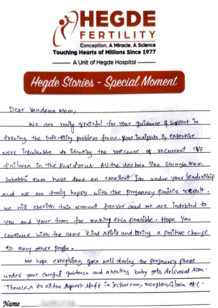 HEGDE
FERTILITY
Conception. A Miracle. A Science
Touching Hearts of Millions Since 1977
A Unit of Hegde Hospital
Hegde Stories - Special Moment
Dear Vandana Mam,
We are really grateful for your guidance & support in
treating the infertility problem faced. Your insights & expertise
were invaluable in identifying the root cause of recurrent IVF
failures in the past for us. All the doctors like Sowmya mam,
mam have done an excellent job under your leadership
and we are truly happy with the pregnancy positive result.
We will cherish this moment forever and we are indebted to
you and your team for making this possible. Hope you
continue with the same kind and bring a positive change
to many other people.
We hope everything goes well during the pregnancy phase
under your careful guidance and a healthy baby gets delivered
Thanks to all the support staff in
Name